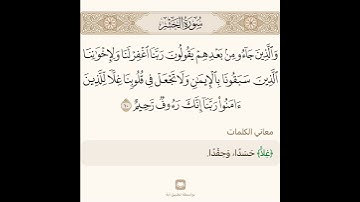 سُورَةُ الحَشْرِ
وَٱلَّذِينَ جَآءُو مِنۢ بَعْدِهِمْ يَقُولُونَ رَبَّنَا ٱغْفِرْ لَنَا وَلِإِخْوَٰنِنَا
ٱلَّذِينَ سَبَقُونَا بِٱلْإِيمَٰنِ وَلَا تَجْعَلْ فِى قُلُوبِنَا غِلًّا لِّلَّذِينَ
ءَامَنُوا۟ رَبَّنَآ إِنَّكَ رَءُوفٌ رَّحِيمٌ ١٠
معاني الكلمات
﴿غِلًّا﴾ حَسَدًا، وَحِقْدًا.